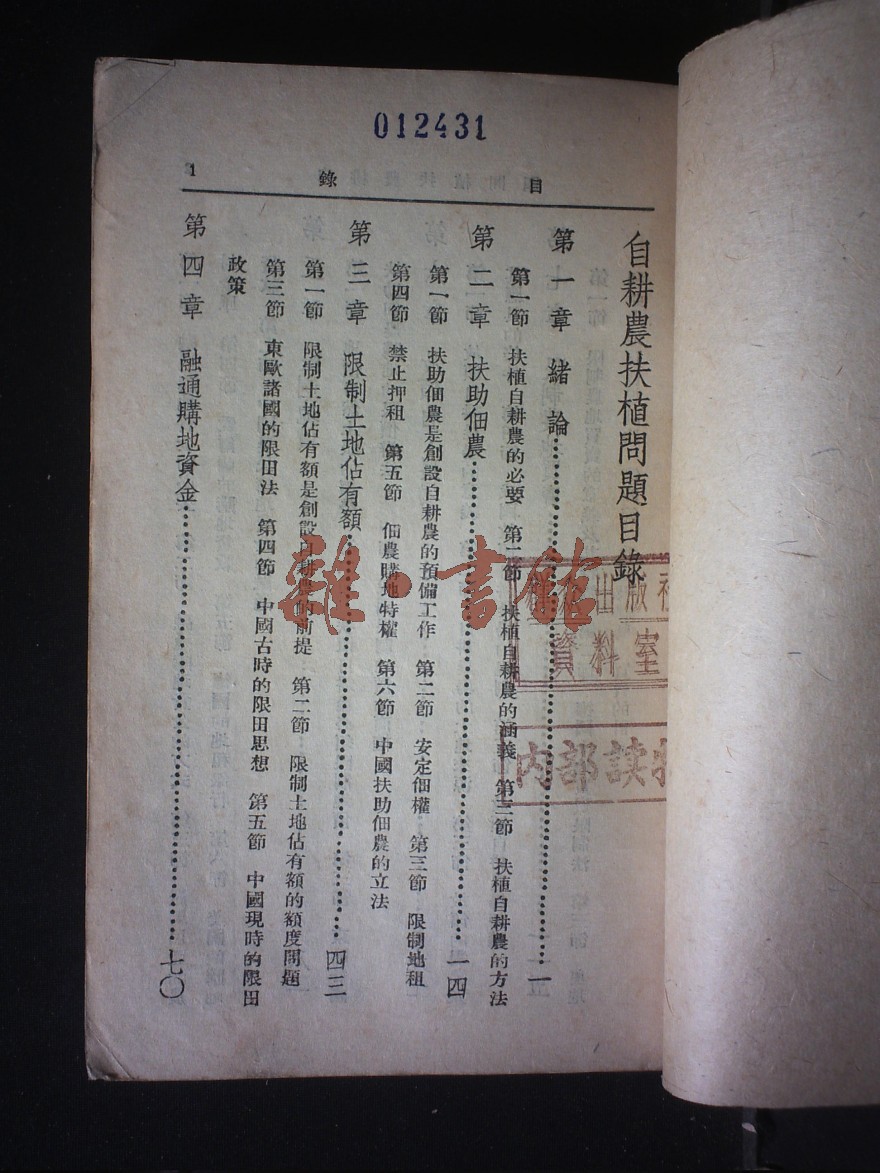 012431
目錄 1
自耕農扶植問題目錄
第一章 緒論…………一
第一節 扶植自耕農的必要 第二節 扶植自耕農的涵義 第三節 扶植自耕農的方法
第二章 扶助佃農…………一四
第一節 扶助佃農是創設自耕農的預備工作 第二節 安定佃權 第三節 限制地租
第四節 禁止押租 第五節 佃農購地特權 第六節 中國扶助佃農的立法
第三章 限制土地佔有額…………四三
第一節 限制土地佔有額是創設自耕農的前提 第二節 限制土地佔有額的額度問題
第三節 東歐諸國的限田法 第四節 中國古時的限田思想 第五節 中國現時的限田
政策
第四章 融通購地資金…………七〇
出版社
資料室
内部读物
雜·書館